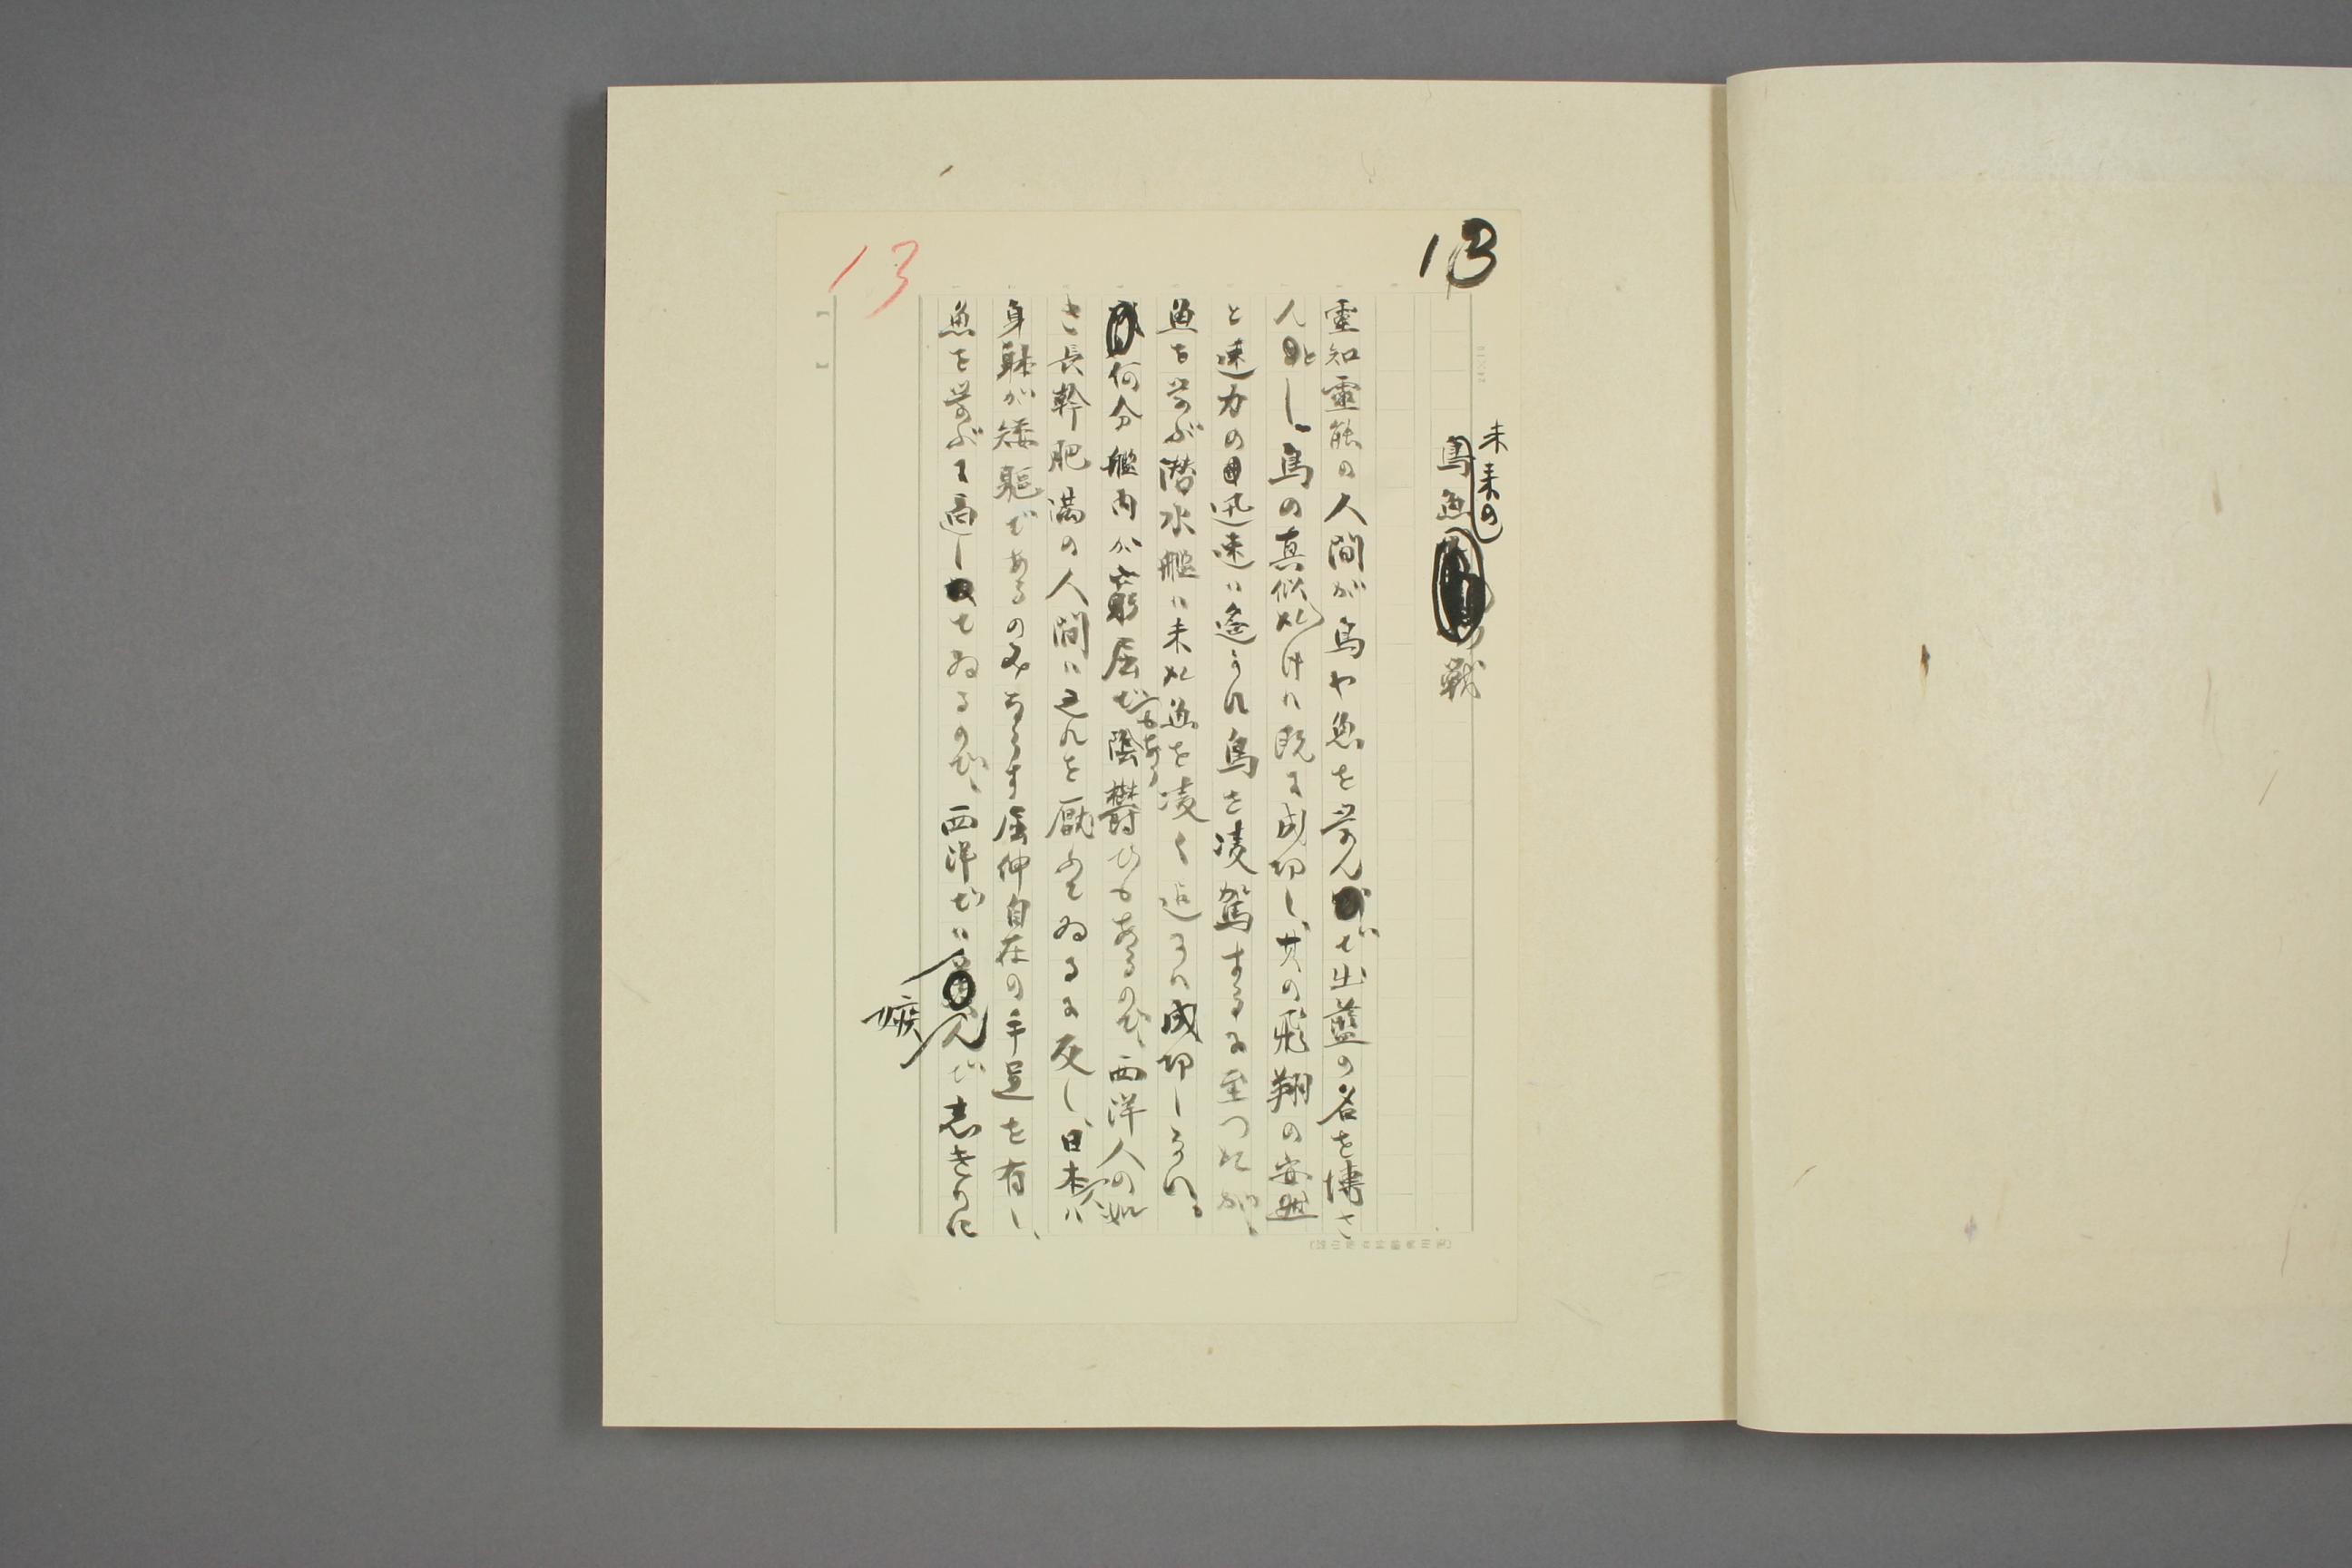 13
未来の
鳥魚の戦
霊知霊能の人間が鳥や魚を学んで出藍の名を博さ
んとし鳥の真似だけは既に成功し、其の飛翔の安逸
と速力の迅速は遙かに鳥を凌駕するに至つたが、
魚を学ぶ潜水艦は未だ魚を凌ぐ迄には成功しない。
何分艦内が窮屈でもあり陰鬱でもあるので、西洋人の如
き長幹肥満の人間は之れを厭ふてゐるに反し、日本人は
身躰が矮躯であるのみならず屈伸自在の手足を有し、
魚を学ぶに適してゐるので、西洋では
嫉んで志きりに
13